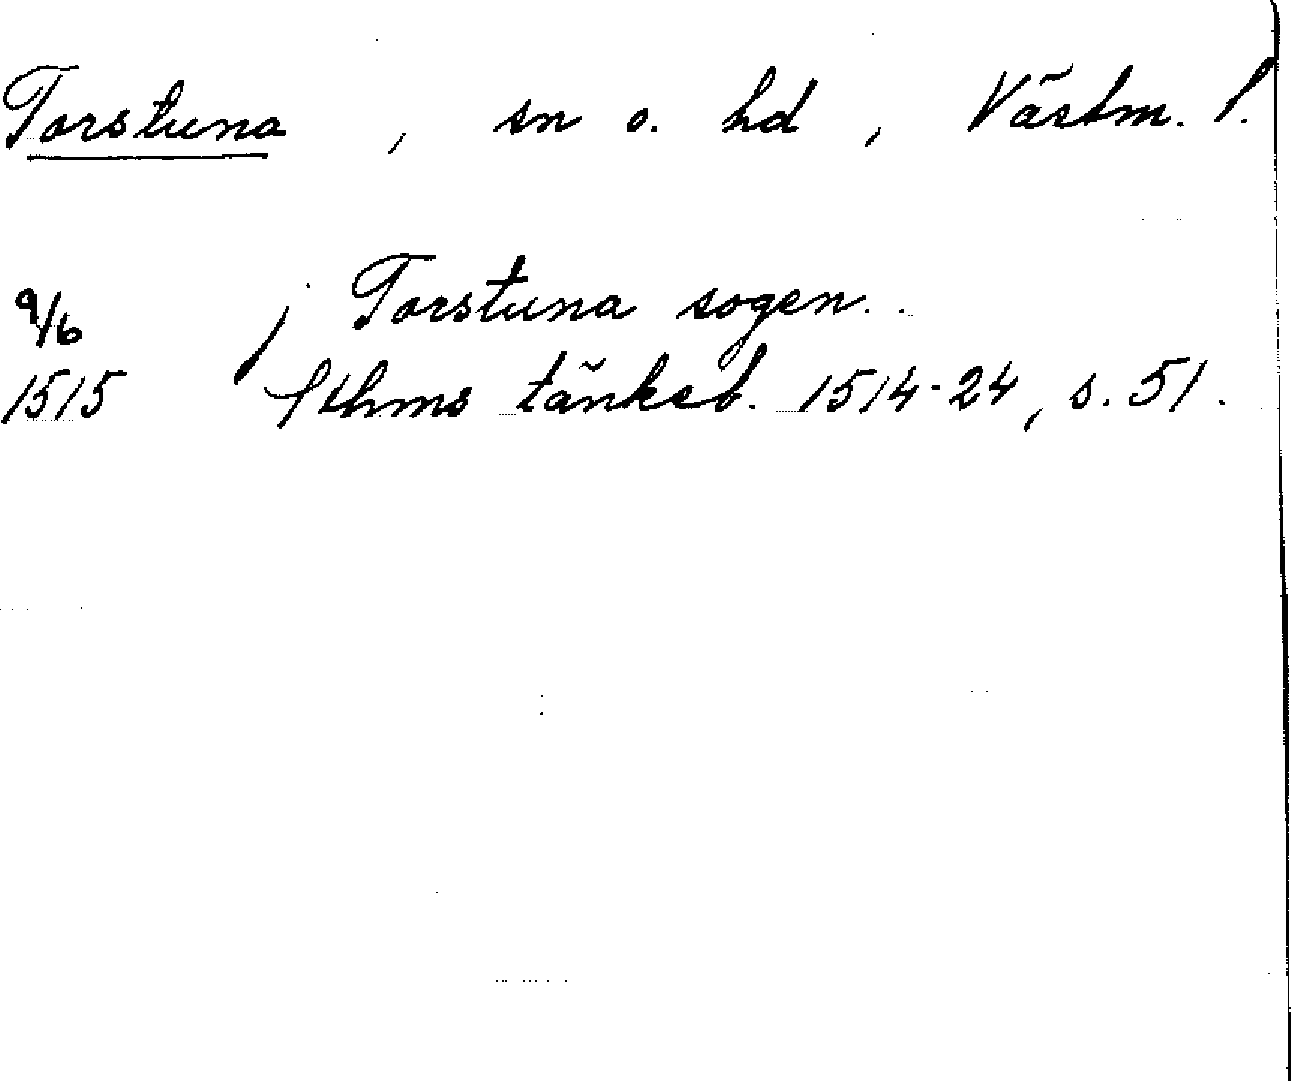 Torstuna , sn o. hd , Västm. l.
9/6 j Torstuna sogen..
1515 Sthms tänkeb. 1514-24, s. 51.